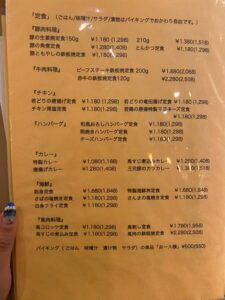 「定食」(ごはん/味噌汁/サラダ/漬物はバイキングでおかわり自由です。)
「豚肉料理」
豚の生姜焼定食150g ¥1,180(1,298) 210g ¥1,380(1,518)
豚の角煮定食 ¥1,180(1,298) とんかつ定食 ¥1,180(1,298)
豚ともやしの鉄板焼定食 ¥1,180(1,298)
「牛肉料理」 ビーフステーキ鉄板焼定食120g ¥1,880(2,068)
赤牛の鉄板焼定食200g ¥2,280(2,508)
「チキン」
若どりの唐揚げ定食 ¥1,180(1,298) 若どりの竜田揚げ定食 ¥1,180(1,298)
チキン南蛮定食 ¥1,180(1,298) 若どりの香草特製マヨネーズ定食 ¥1,180(1,298)
「ハンバーグ」 和風おろしハンバーグ定食 ¥1,180(1,298)
照焼きハンバーグ定食 ¥1,180(1,298)
チーズハンバーグ定食 ¥1,180(1,298)
「カレー」
特製カレー ¥1,080(1,188) 馬すじ煮込みカレー ¥1,180(1,298)
唐揚げカレー ¥1,180(1,298) 三元豚のカツカレー ¥1,180(1,298)
「海鮮」
刺身定食 ¥1,680(1,848) 特製海鮮丼定食 ¥1,680(1,848)
さばの塩焼き定食 ¥1,180(1,298) さんまの塩焼き定食 ¥1,180(1,298)
白身フライ定食 ¥1,180(1,298)
「馬肉料理」
馬コロッケ定食 ¥1,180(1,298) 馬刺し定食 ¥1,780(1,958)
馬すじの煮込み定食 ¥1,180(1,298) 馬肉の鉄板焼定食 ¥2,280(2,508)
バイキング(ごはん 味噌汁 漬け物 サラダ)の単品「お一人様」¥500(550)